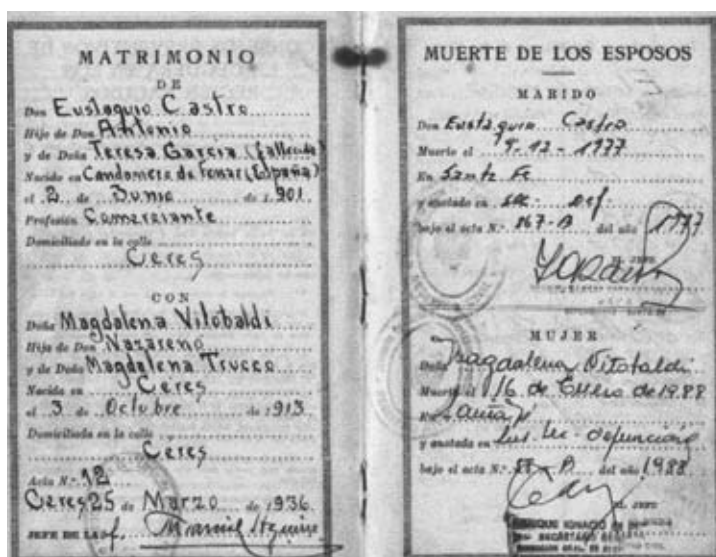 MATRIMONIO
DE
Don Eustaquio Castro
Hijo de Don Antonio
y de Doña Teresa Garcia (fallecida)
Nacido en Candomero de Fenar (España)
el 2 de Junio de 1.901
Profesión Comerciante
Domiciliado en la calle
Ceres
CON
Doña Magdalena Vitobaldi
Hija de Don Nazareno
y de Doña Magdalena Trucco
Nacida en Ceres
el 3 de Octubre de 1913
Domiciliada en la calle
Ceres
Acta N.º 12
Ceres 25 de Marzo de 1936
JEFE DE LA of.
MUERTE DE LOS ESPOSOS
MARIDO
Don Eustaquio Castro
Muerto el 9-12-1977
En Santa Fe
y anotado en Sec. Def.
bajo el acta N.º 867-B del año 1977
EL JEFE
MUJER
Doña Magdalena Vitobaldi
Muerta el 16 de Enero de 1988
En
y anotada en defunción
bajo el acta N.º del año 1988
EL JEFE